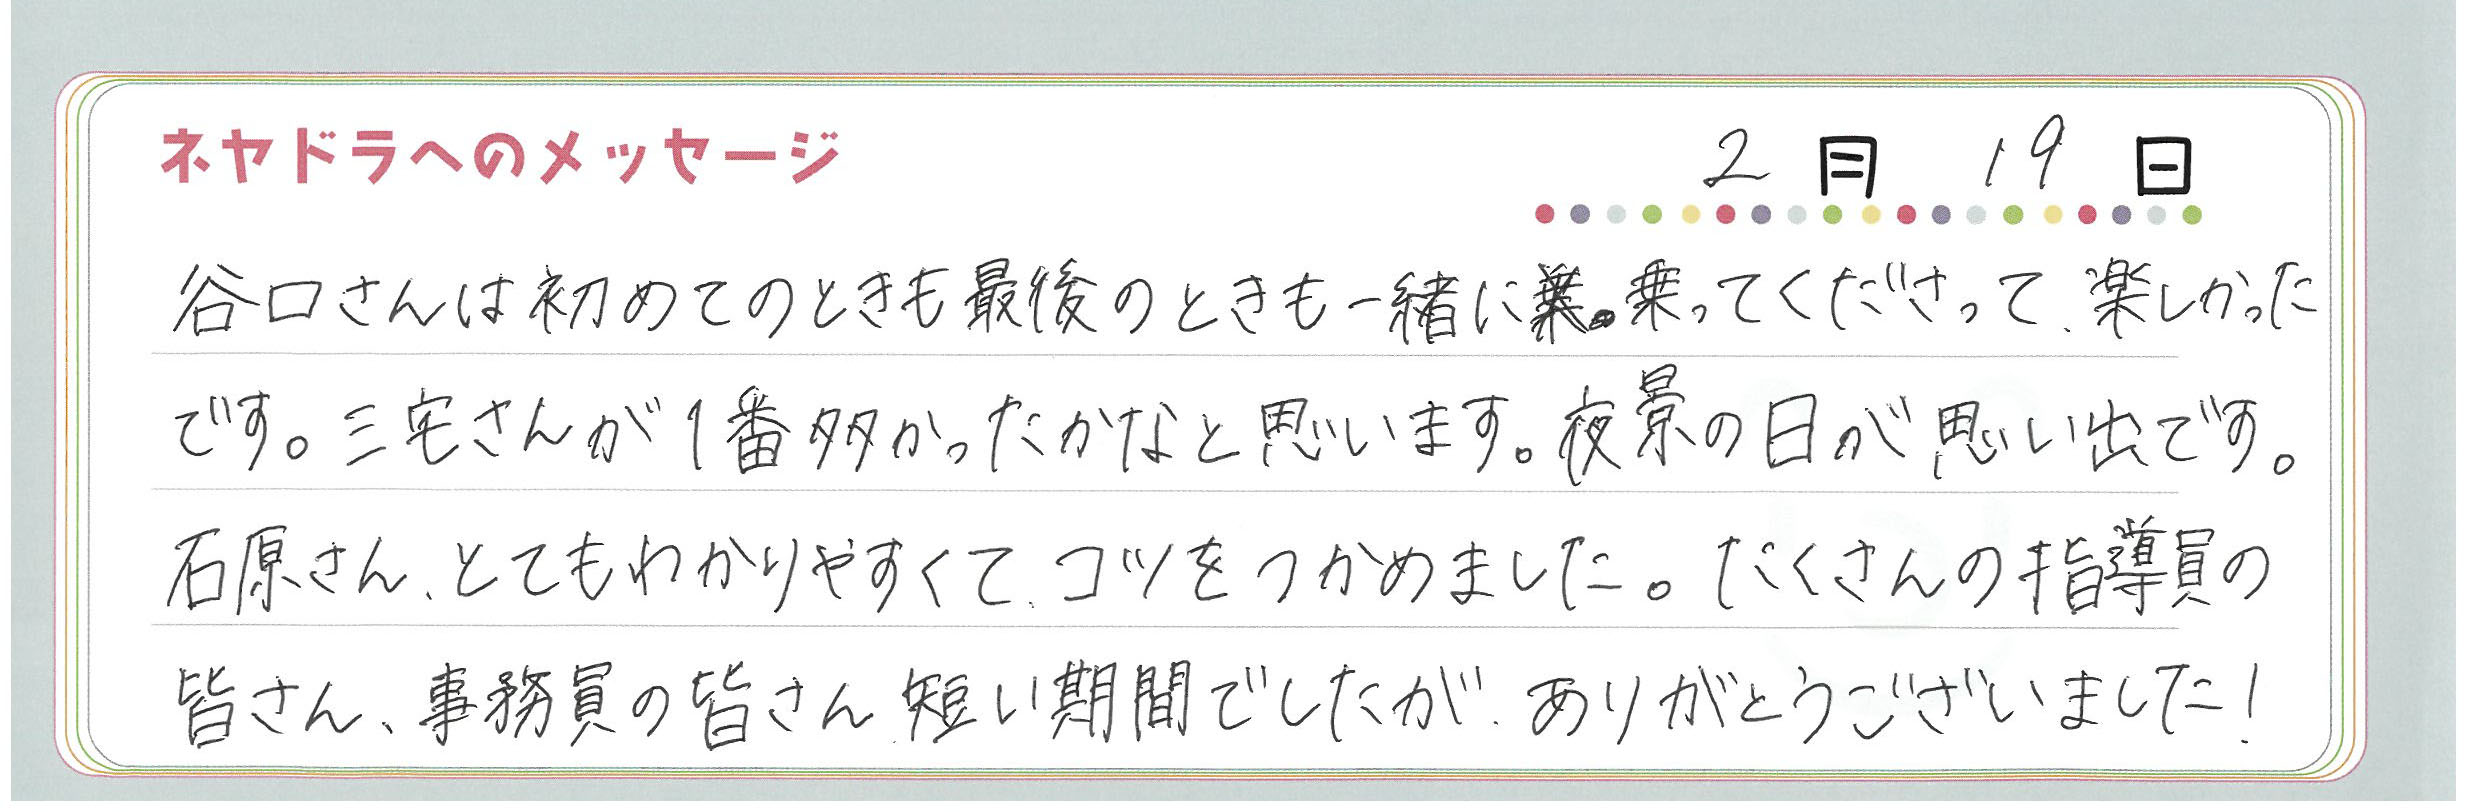 ネヤドラへのメッセージ
2月 19日
谷口さんは初めてのときも最後のときも一緒に乗ってくださって、楽しかった
です。三宅さんが1番多かったかなと思います。夜景の日が思い出です。
石原さん、とてもわかりやすくて、コツをつかめました。たくさんの指導員の
皆さん、事務員の皆さん、短い期間でしたが、ありがとうございました!